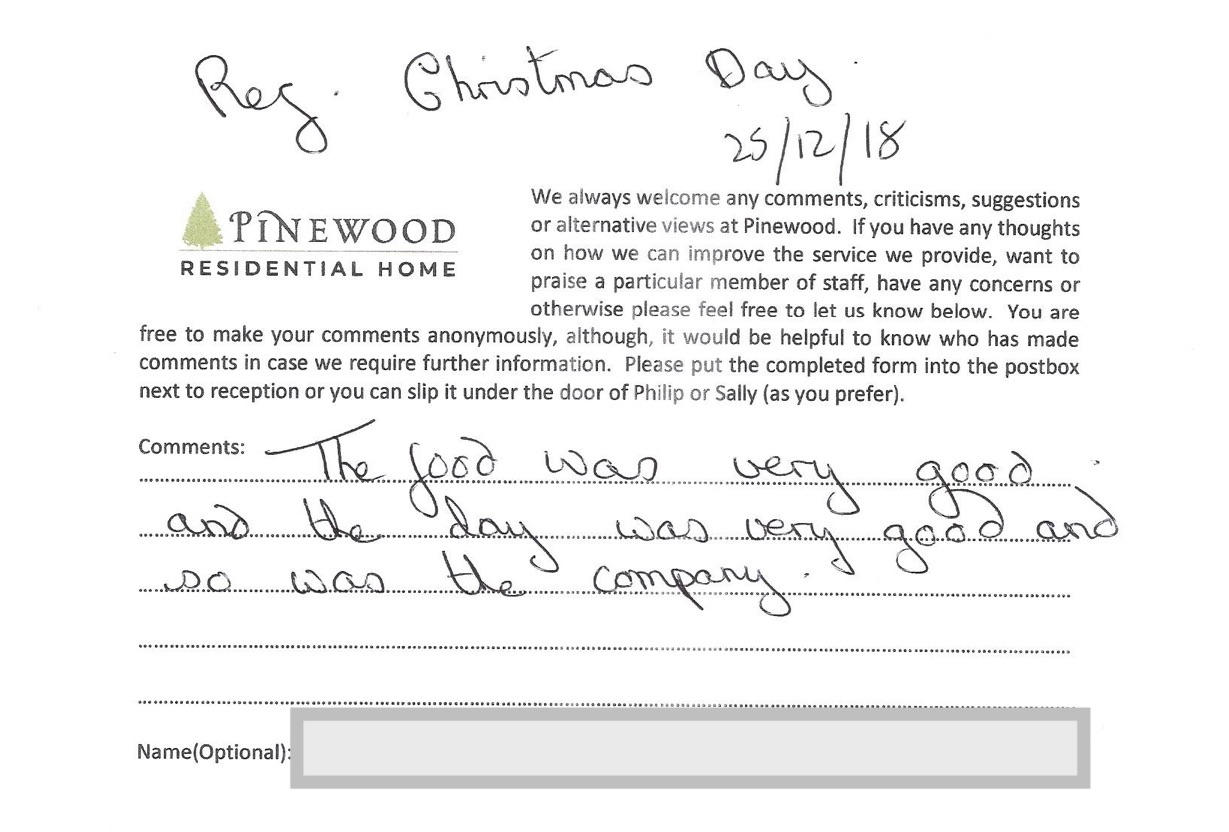 Reg. Christmas Day.
25/12/18
PINEWOOD
RESIDENTIAL HOME
We always welcome any comments, criticisms, suggestions
or alternative views at Pinewood. If you have any thoughts
on how we can improve the service we provide, want to
praise a particular member of staff, have any concerns or
otherwise please feel free to let us know below. You are
free to make your comments anonymously, although, it would be helpful to know who has made
comments in case we require further information. Please put the completed form into the postbox
next to reception or you can slip it under the door of Philip or Sally (as you prefer).
Comments: The food was very good
and the day was very good and
so was the company.
Name(Optional):